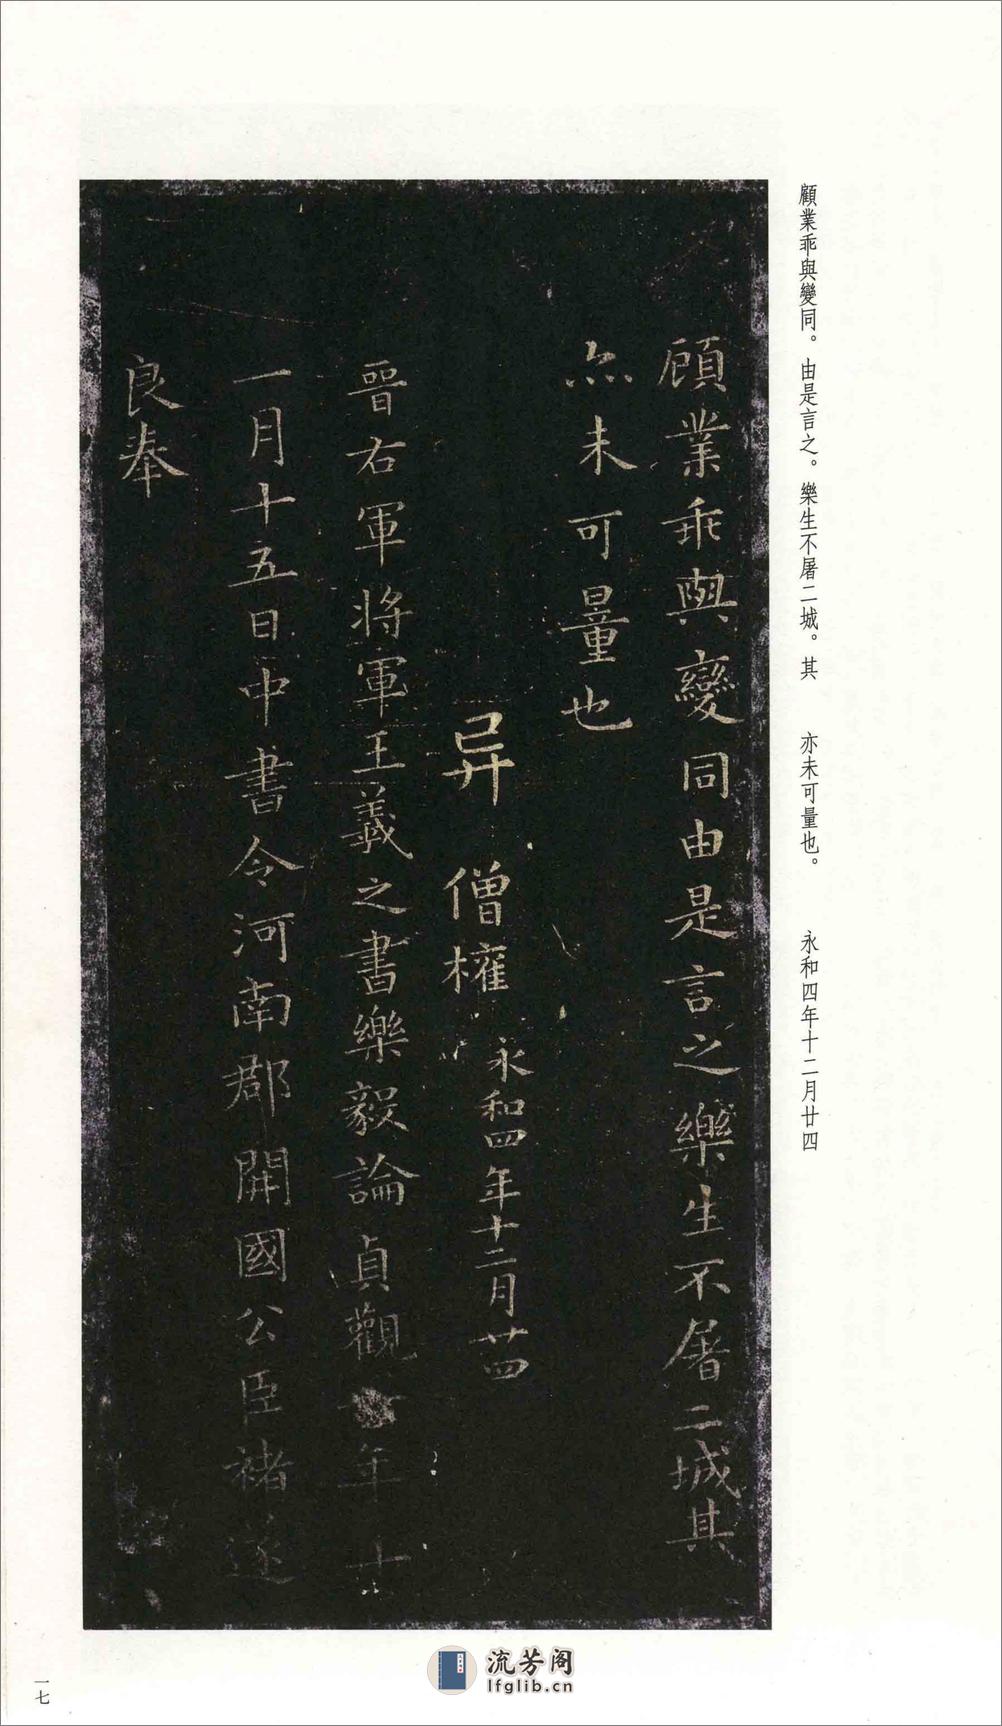 顧業乖與變同。由是言之。樂生不屠二城。其 亦未可量也。 永和四年十二月廿四
顧業乖與變同由是言之樂生不屠二城其
亦未可量也
异 僧權 永和四年十二月廿四
晉右軍將軍王羲之書樂毅論貞觀年十
一月十五日中書令河南郡開國公臣褚遂
良奉
一七
流芳阁
lfglib.cn